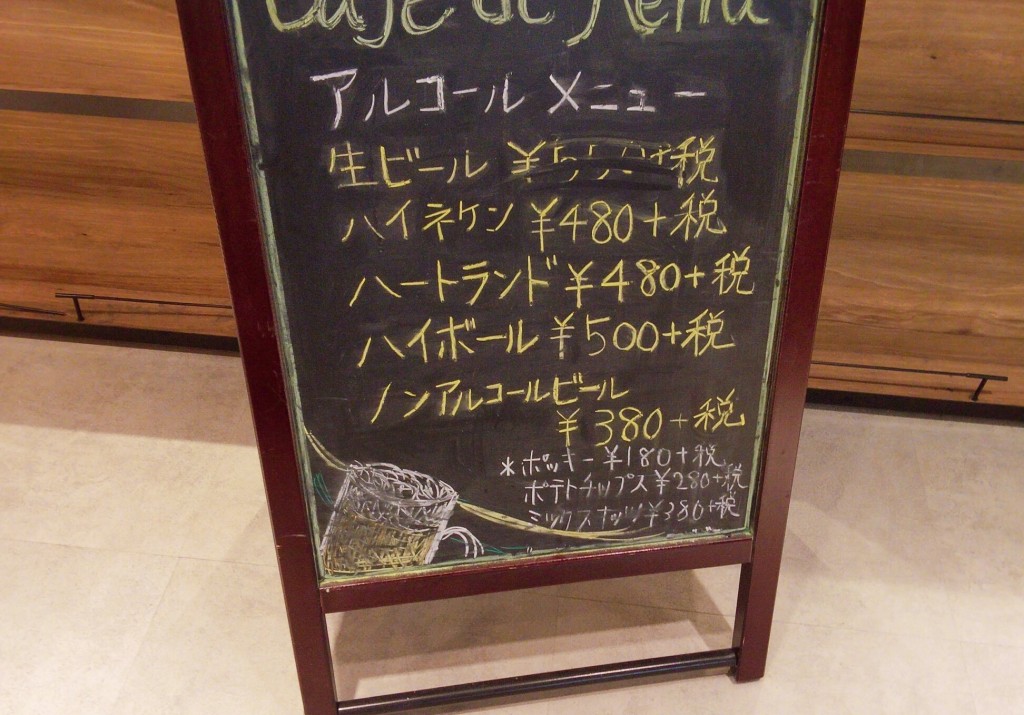 Café de
アルコールメニュー
生ビール ¥550+税
ハイネケン ¥480+税
ハートランド ¥480+税
ハイボール ¥500+税
ノンアルコールビール
¥380+税
*ポッキー ¥180+税
ポテトチップス ¥280+税
ミックスナッツ ¥380+税